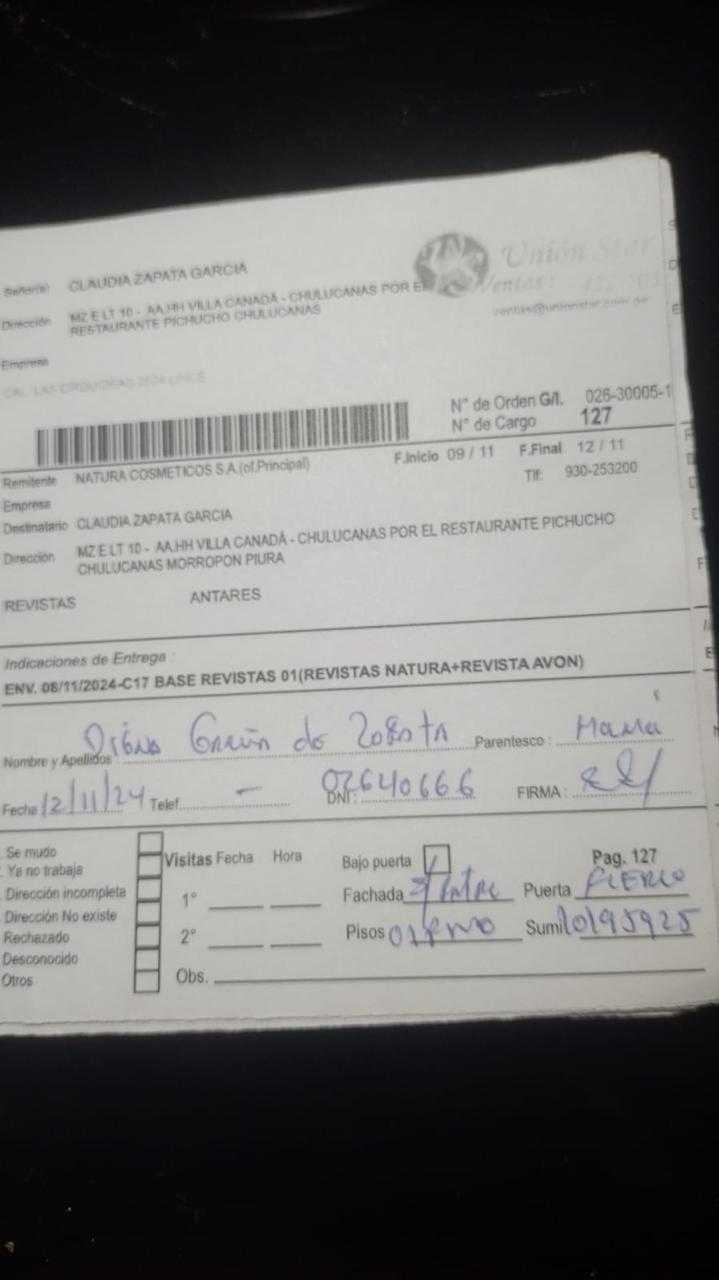 Señor(a) CLAUDIA ZAPATA GARCIA
Unión Star
Ventas:
Dirección MZ E LT 10 - AA.HH VILLA CANADÁ - CHULUCANAS POR EL
RESTAURANTE PICHUCHO CHULUCANAS
ventas@unionstar.com.pe
Empresa
N° de Orden G/I. 026-30005-1
N° de Cargo 127
Remitente NATURA COSMETICOS S.A.(of.Principal) F.Inicio 09 / 11 F.Final 12 / 11
Empresa Tlf: 930-253200
Destinatario CLAUDIA ZAPATA GARCIA
Dirección MZ E LT 10 - AA.HH VILLA CANADÁ - CHULUCANAS POR EL RESTAURANTE PICHUCHO
CHULUCANAS MORROPON PIURA
REVISTAS ANTARES
Indicaciones de Entrega :
ENV. 08/11/2024-C17 BASE REVISTAS 01(REVISTAS NATURA+REVISTA AVON)
Nombre y Apellidos : Parentesco : Mamá
Fecha 12/11/24 Telef. - DNI : 02640666 FIRMA :
Se mudo
Ya no trabaja
Dirección incompleta
Dirección No existe
Rechazado
Desconocido
Otros
Visitas Fecha Hora
1°
2°
Obs.
Bajo puerta Pag. 127
Fachada Puerta FIERRO
Pisos 01 Sumi